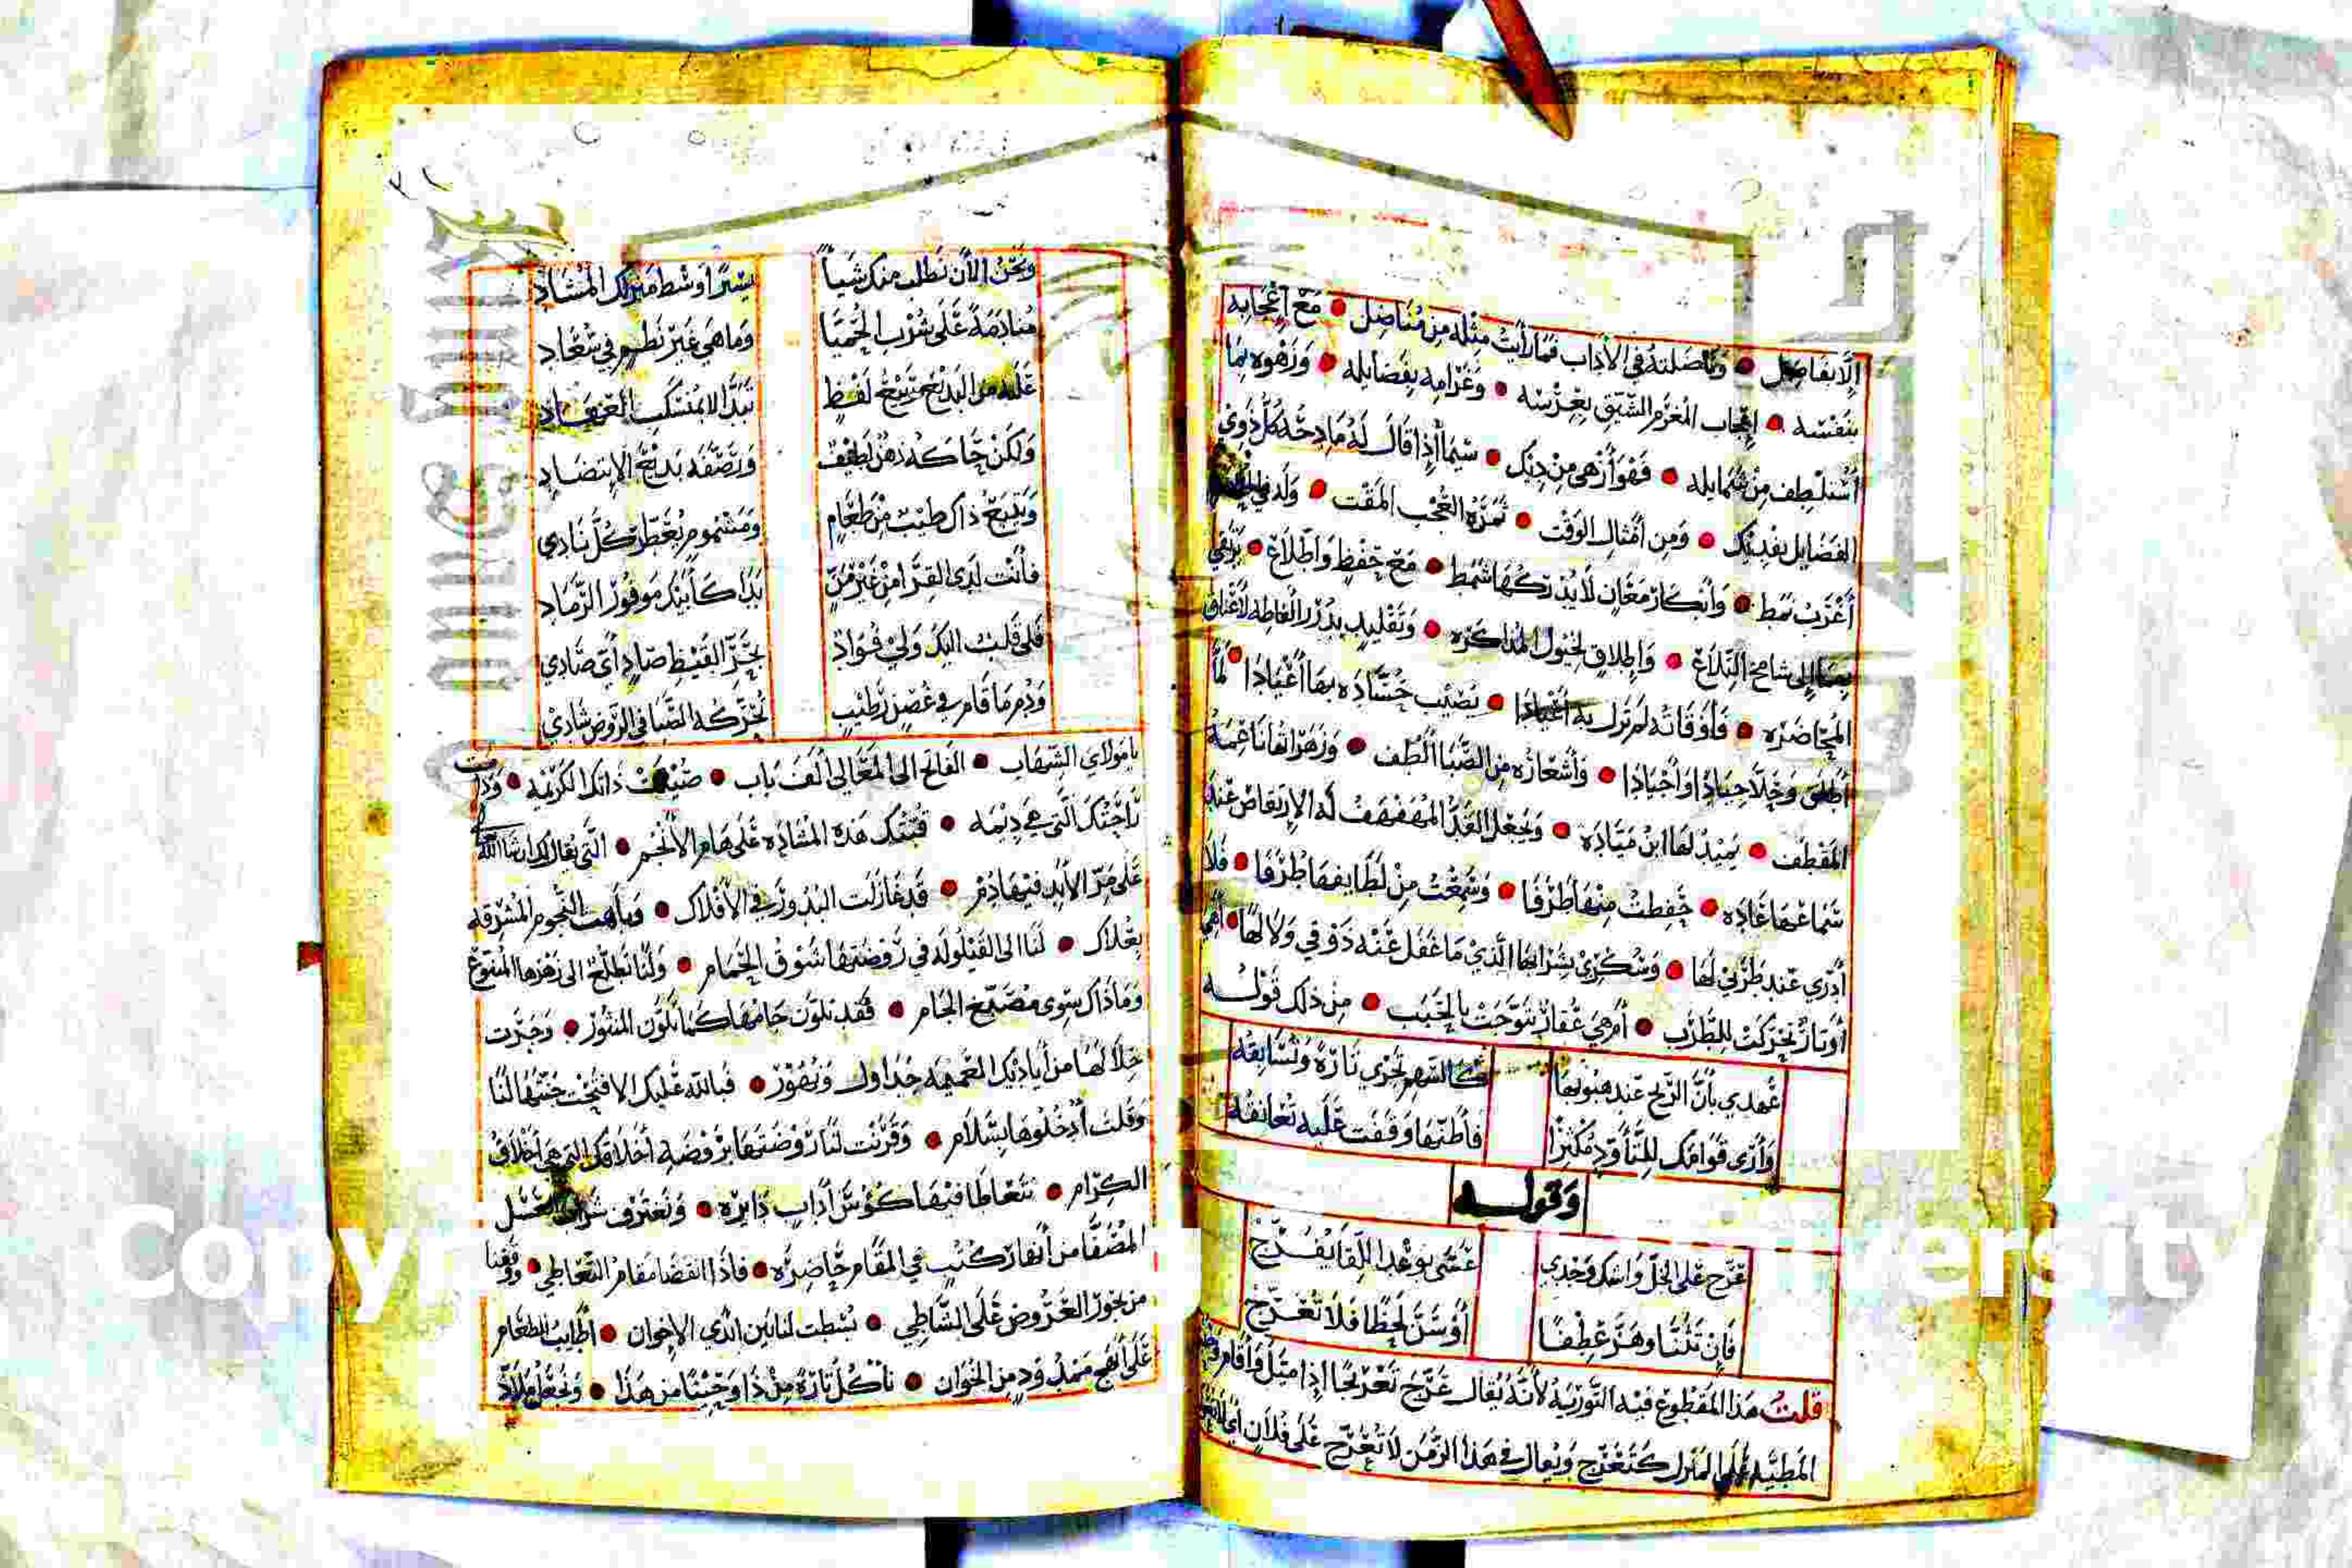 إلا بفاضل وناضلته في الآداب فما رأيت مثله من مناضل مع إعجابه
بنفسه إعجاب المغرم الشيق بعرسه وغرامه بفضايله وزهوه بما
استلطف من شمايله فهو أزهى من ديك سيما إذا قال له مادحه كل ذوي
الفضايل يفديك ومن أمثال الوقت ثمرة العجب المقت وله في
أغرب نمط وأبكار معان لا يدركها شمط مع حفظ واطلاع يرتقي
بهما إلى شامخ التلاع وإطلاق لخيول المذاكره وتقليد بدرر ألفاظه لأعناق
المحاضره فأوقاته لم تزل به أعيادا يصيب حساده بها
وحلا جيادا وأجيادا وأشعاره من الصبا ألطف وزهراتها ناعمة
المقطف يميد لها ابن مياده ويجعل القد المهفهف له الارتقاص عند
سماعها عاده حفظت منها طرفا وسمعت من لطايفها طرفا فلا
أدري عند طربي لها وسكري بشرابها الذي ما غفل عنه ذوقي ولا لها أهي
أوتار تحركت للطرب أم هي عقار تتوجت بالحبب من ذلك قوله
عهدي بأن الريح عند هبوبها كالسهم تجري تارة وتسابقه
وأرى قوامك للتأود مكثرا فأظنها وقفت عليه تعانقه
وقوله
عرج على الخل واشك وجدي عسى بوعد اللقا يفرج
فإن تثنا وهز عطفا أو سل لحظا فلا تعرج
قلت هذا المقطوع فيه التورية لأنه يقال عرج تعريجا إذا ميل وأقام
المطية على المنزل كتعرج ويقال في هذا الزمن لا تعرج على فلان أي
ونحن الآن نطلب منك شيا يسرا وسط منزلك المشاد
منادمة على شرب الحميا وما هي غير نظم في سعاد
عليه من البديع بديع لفظ تبدا لا بمنسكب العهاد
ولكن حاكه ذهن لطيف ورصفه بديع الانتضاد
ويتبع ذاك طيب من طعام ومشموم يعطر كل نادي
فأنت لدى القرا من غير من بدا كأبيك موفور الرماد
فلي قلب اليك ولي فواد بحر القيظ صاد أي صادي
ودم ما قام في غصن رطيب تحركه الصبا في الروض شادي
يا مولاي الشهاب الفاتح إلى المعالي ألف باب ذاتك الكريمه ودامت
راحتك التي هي ديمه قبتك هذه المشاده على هام الأنجم التي يقال لك إن شاء الله
على مر الأبد فيها دم قد غازلت البدور في الأفلاك وباهت النجوم المشرقه
بعلاك لنا إلى القيلوله في روضتها شوق الحمام ولنا تطلع إلى زهرها المنوع
وما ذاك سوى مصمغ الجام فقد تلون جامها كما تلون المنثور وجرت
خلالها من أياديك العميمه جداول ونهور فبالله عليك الا فتحت جنتها لنا
وقلت ادخلوها بسلام وقرنت لنا روضتها بروضة أخلاقك التي هي أخلاق
الكرام نتعاطا فيها كؤس آداب دايره ونغترف العسل
المصفا من أنهار كتب في المقام حاضره فاذا انقضا مقام التعاطي ووقفنا
من بحور العروض على الشاطي بسطت لنا بين الاخوان أطايب الطعام
على أبهج ممدود من الخوان نأكل تارة من ذا وحينا من هذا ونجعل